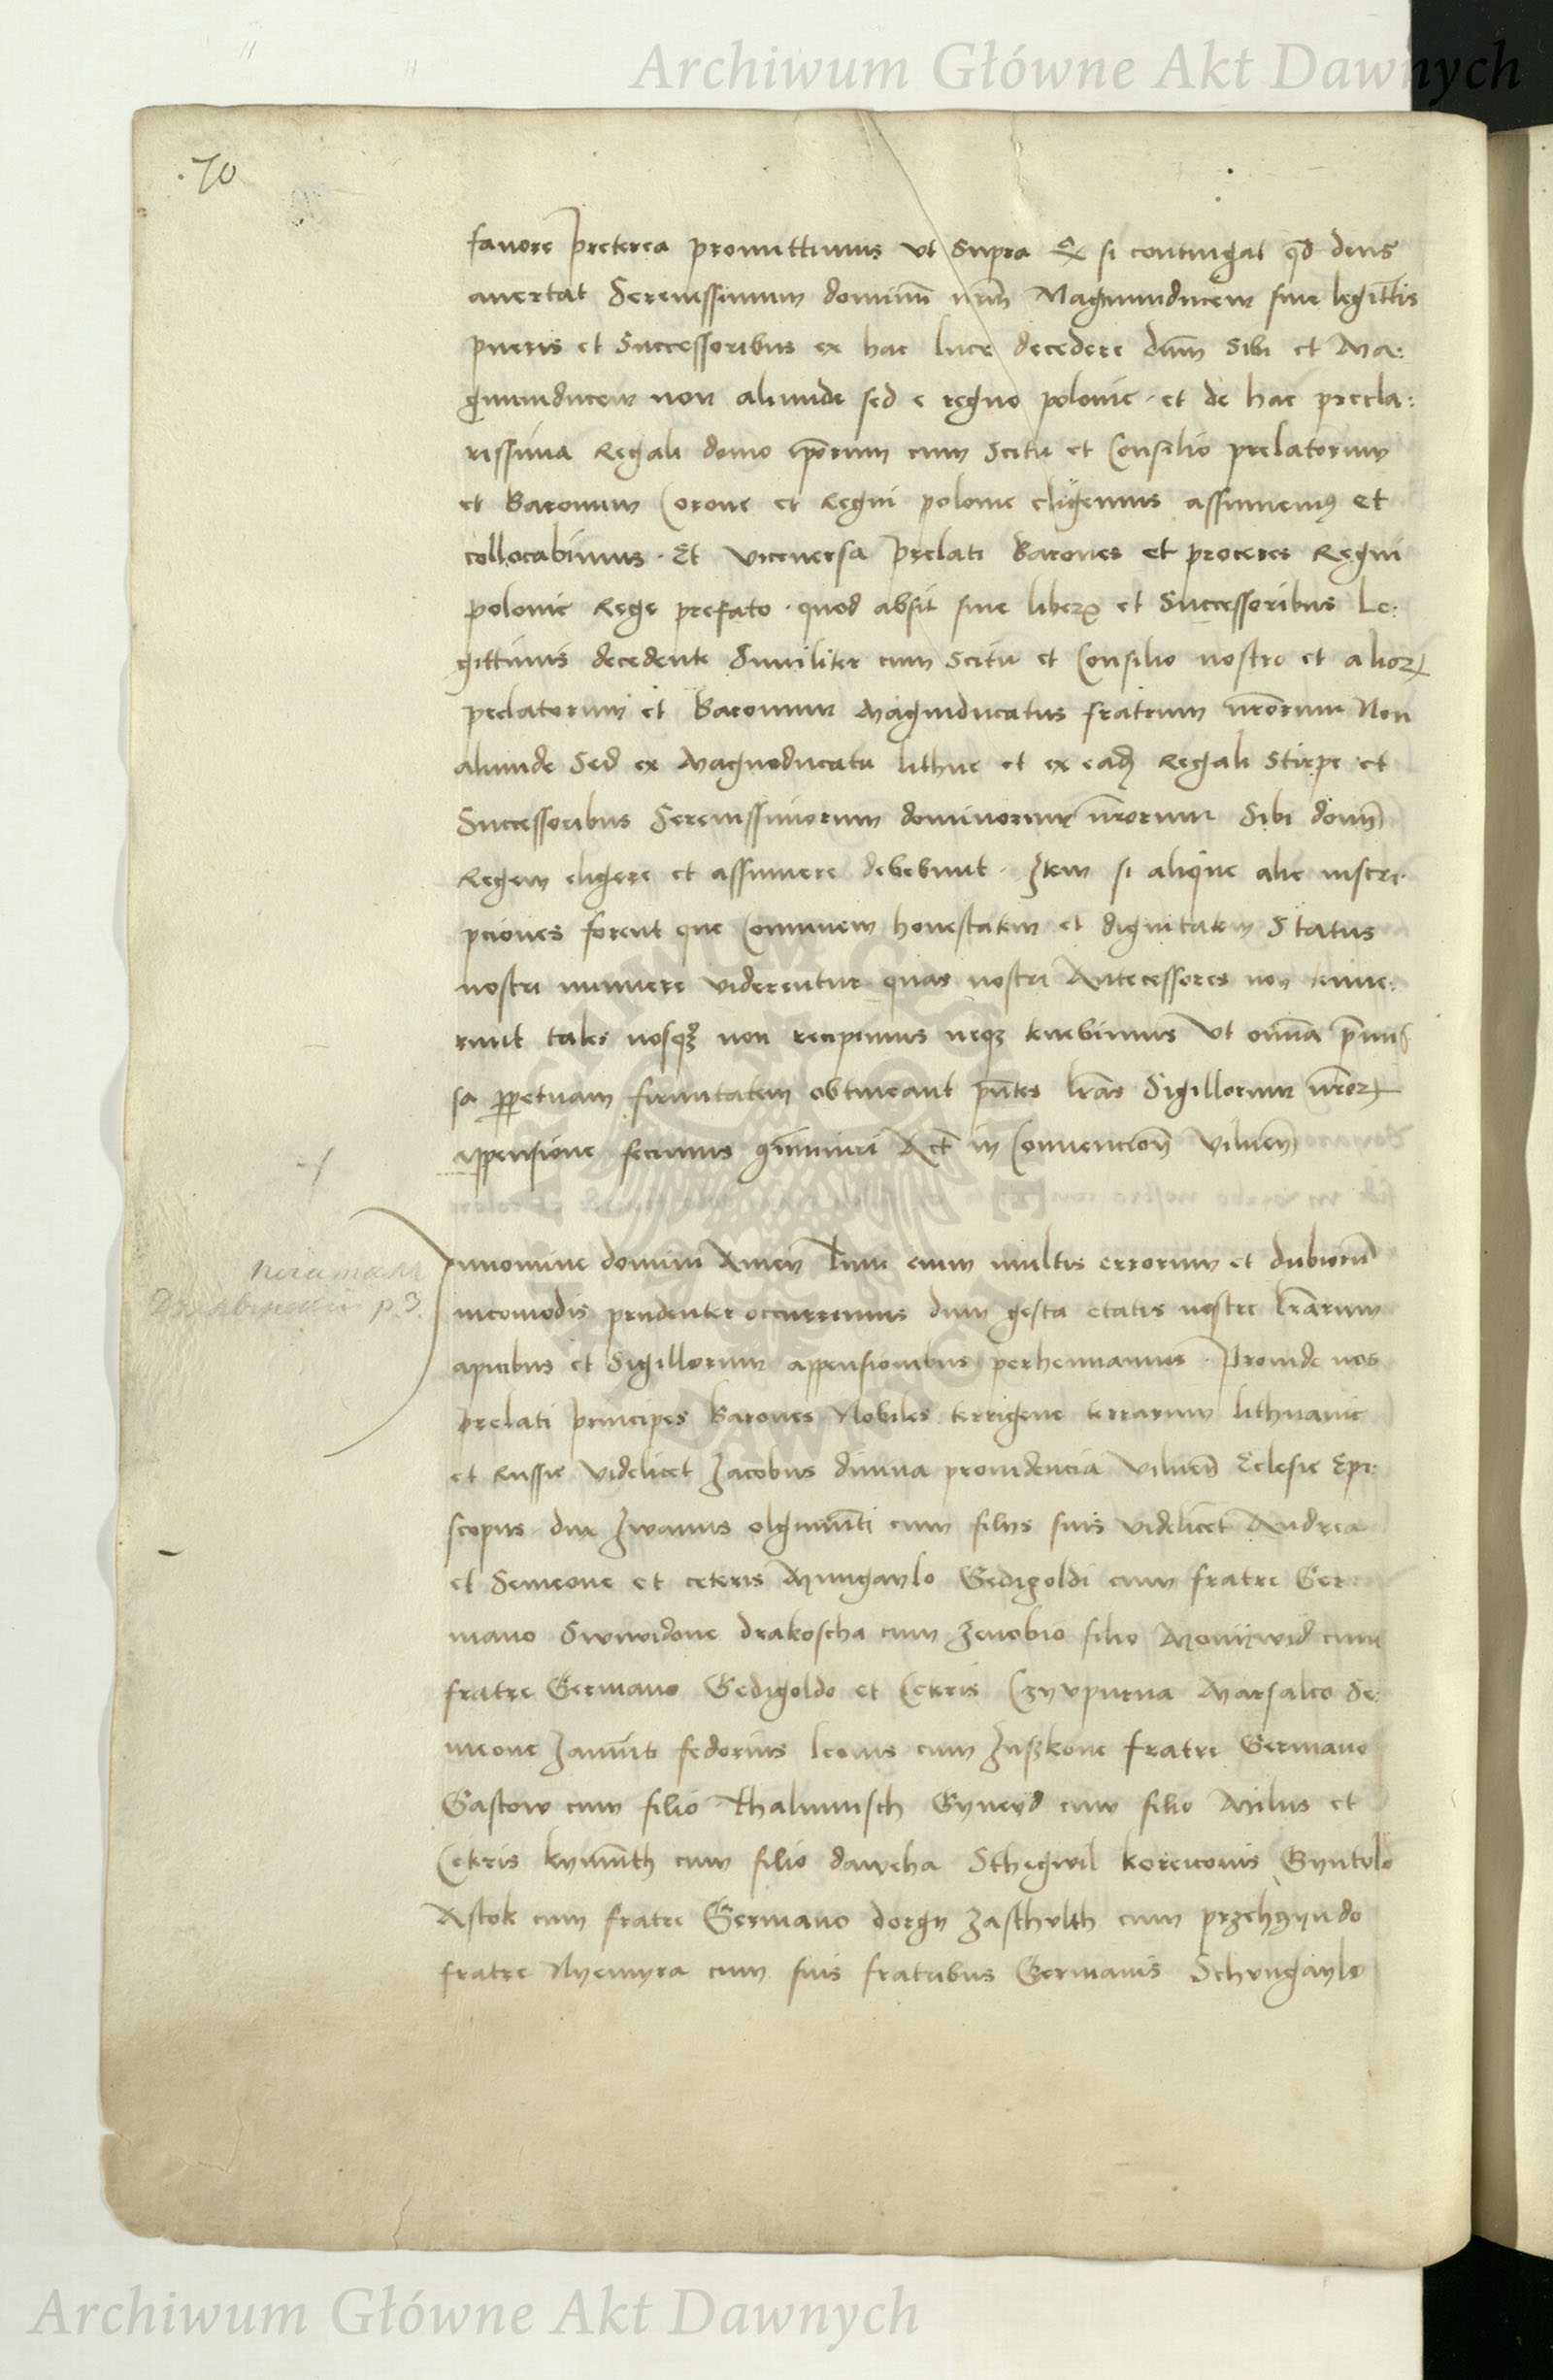 Archiwum Główne Akt Dawnych
.70
fauore preterea promittimus vt Supra Et si contingat qd deus
auertat Serenissimum dominū nrm̄ Magnumducem sine legittis
pueris et Successoribus ex hac luce decedere dnm̄ Sibi et Ma:
gnumducem non aliunde sed e regno polonie et de hac precla:
rissima Regali domo ip̄orum cum Scitu et Consilio prelatorum
et Baronum Corone et Regni polonie eligemus assumemus et
collocabimus . Et viceuersa prelati Barones et proceres Regni
polonie Rege prefato . quod absit sine liberis et Successoribus Le:
gittimis decedente Similiter cum Scitu et Consilio nostro et alior
prelatorum et Baronum Magniducatus fratrum nr̄orum Non
aliunde Sed ex Magnoducatu lithue et ex eadē Regali Stirpe et
Successoribus Serenissimorum dominorum nr̄orum Sibi domn̄
Regem eligere et assumere debebunt . Item si alique alie inscri
pciones forent que Comunem honestatem et dignitatem Status
nostri minuere viderentur quas nostri Antecessores non tenue:
runt tales nosqȝ non recipimus neqȝ tenebimus vt omnia p̄mis
sa perpetuam firmitatem obtineant pn̄tes lr̄as Sigillorum nr̄or
appensione fecimus ꝯmuniri Act in Conuencion̄ vilnen̄
Innomine domini Amen Tunc enim multis errorum et dubiorū
incomodis prudenter occurrimus dum gesta etatis nostre lr̄arum
apicibus et Sigillorum appensionibus perhennamus . Proinde nos
prelati principes Barones Nobiles terrigene terrarum lithuanie
et Russie videlicet Jacobus diuina prouidencia vilnen̄ Eclesie Epi:
scopus dux Iwanus olgimūti cum filijs suis videlicet Andrea
et Semeone et ceteris Mungaylo Gedigoldi cum fratre Ger
mano Swwidone drakoscha cum Zenobio filio Moniwid cum
fratre Germano Gedigoldo et Ceteris Czupurna Marsalco Se:
meone Jamūti fedorius leonis cum Juszkone fratre Germano
Gastow cum filio Thalimisch Gyneyd cum filio Milus et
Ceteris kymūth cum filio daweha Sthegwil koreiconis Gyntolo
Astok cum fratre Germano dorgy Zasthulth cum przehgyndo
fratre Nyemyra cum suis fratribus Germanis Schungaylo
p. 3.
Archiwum Główne Akt Dawnych